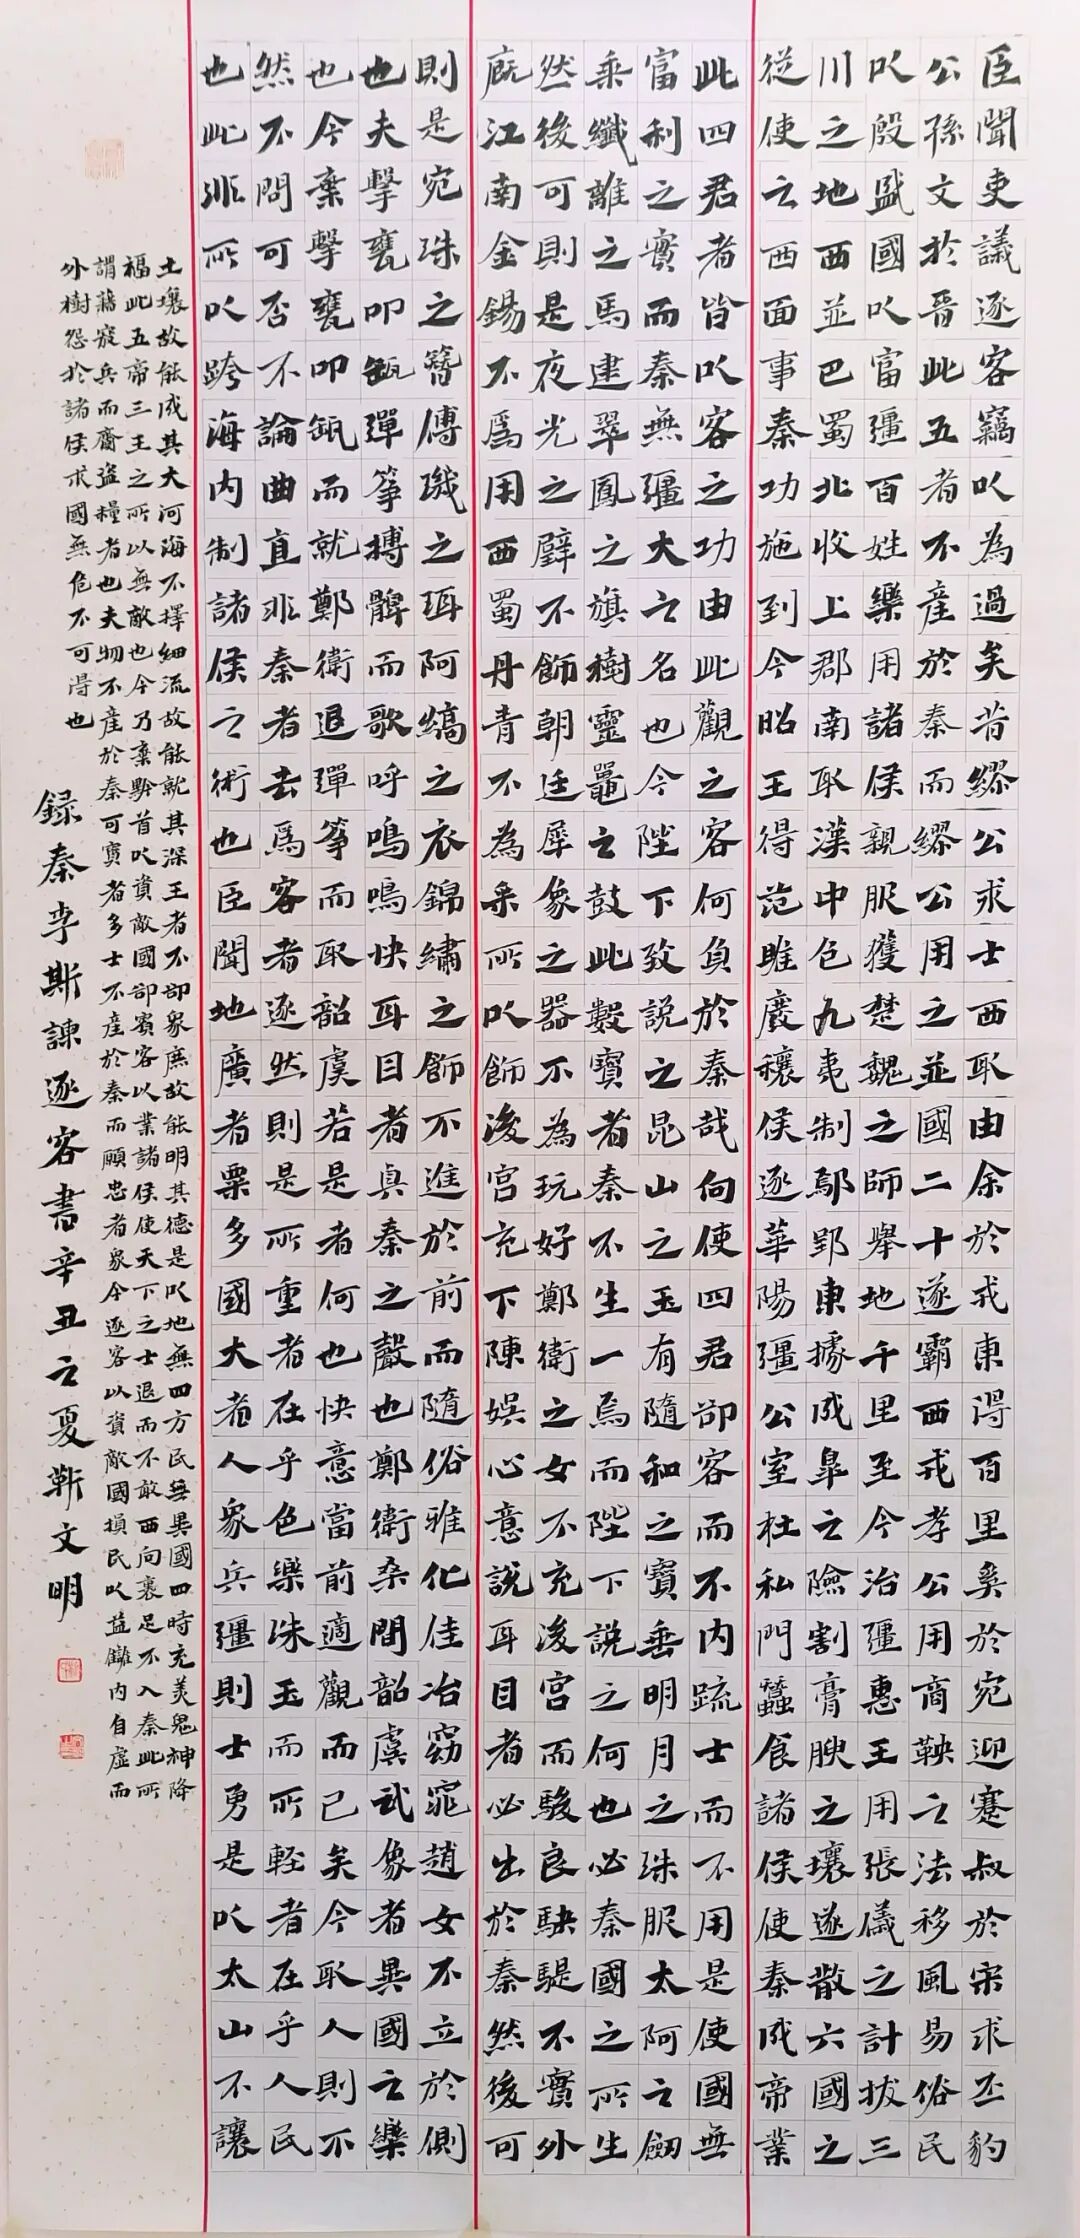 臣聞吏議逐客竊以為過矣昔繆公求士西取由余於戎東得百里奚於宛迎蹇叔於宋求丕豹
公孫文於晉此五者不産於秦而繆公用之並國二十遂霸西戎孝公用商鞅之法移風易俗民
以殷盛國以富彊百姓樂用諸侯親服獲楚魏之師舉地千里至今治彊惠王用張儀之計拔三
川之地西並巴蜀北收上郡南取漢中包九夷制鄢郢東據成皋之險割膏腴之壤遂散六國之
從使之西面事秦功施到今昭王得范雎廢穰侯逐華陽彊公室杜私門蠶食諸侯使秦成帝業
此四君者皆以客之功由此觀之客何負於秦哉向使四君卻客而不內疏士而不用是使國無
富利之實而秦無彊大之名也今陛下致說之昆山之玉有隨和之寶垂明月之珠服太阿之劒
乘纖離之馬建翠鳳之旗樹靈鼉之鼓此數寶者秦不生一焉而陛下說之何也必秦國之所生
然後可則是夜光之璧不飾朝廷犀象之器不為玩好鄭衛之女不充後宮而駿良駃騠不實外
廐江南金錫不爲用西蜀丹青不為采所以飾後宮充下陳娛心意說耳目者必出於秦然後可
則是宛珠之簪傅璣之珥阿縞之衣錦繡之飾不進於前而隨俗雅化佳冶窈窕趙女不立於側
也夫擊甕叩缻彈箏搏髀而歌呼嗚嗚快耳目者真秦之聲也鄭衛桑間韶虞武象者異國之樂
也今棄擊甕叩缻而就鄭衛退彈箏而取韶虞若是者何也快意當前適觀而已矣今取人則不
然不問可否不論曲直非秦者去爲客者逐然則是所重者在乎色樂珠玉而所輕者在乎人民
也此非所以跨海內制諸侯之術也臣聞地廣者粟多國大者人衆兵彊則士勇是以太山不讓
土壤故能成其大河海不擇細流故能就其深王者不卻衆庶故能明其德是以地無四方民無異國四時充美鬼神降
福此五帝三王之所以無敵也今乃棄黔首以資敵國卻賓客以業諸侯使天下之士退而不敢西向裹足不入秦此所
謂藉寇兵而齎盜糧者也夫物不産於秦可寶者多士不産於秦而願忠者衆今逐客以資敵國損民以益讎內自虛而
外樹怨於諸侯求國無危不可得也
録秦李斯諫逐客書辛丑之夏靳文明